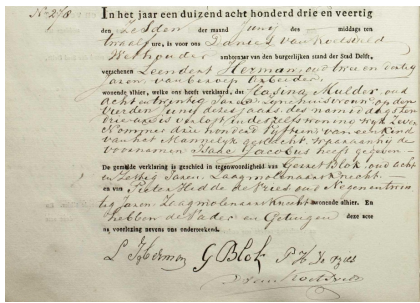 No. 278
In het jaar een duizend acht honderd drie en veertig
den Zesden der maand Junij des middags ten
twaalf ure, is voor ons Daniel van Koetsveld
Wethouder ambtenaar van den burgerlijken stand der Stad Delft,
verschenen Leendert Herman, oud twee en dertig
Jaren, van beroep Arbeider,
wonende alhier, welke ons heeft verklaard, dat Clasina Mulder, oud
acht en twintig Jaren, zijne huisvrouw, op den
vierden Junij dezes Jaars, des namiddags ten
drie ure is verlost in deszelfs woning wijk Zeven
Nommer drie honderd Vijftien van een kind
van het Mannelijk geslacht, waaraan hij de
voornamen Jacobus heeft gegeven
De gemelde verklaring is geschied in tegenwoordigheid van Gerrit Blok, oud acht
en Zestig Jaren, Zaagmolenaarsknecht
en van Pieter Hedde de Vries oud Negenentwin
tig Jaren, Zaagmolenaarsknecht wonende alhier. En
hebben de Vader en Getuigen deze acte
na voorlezing nevens ons onderteekend.
L Herman G Blok P H de Vries